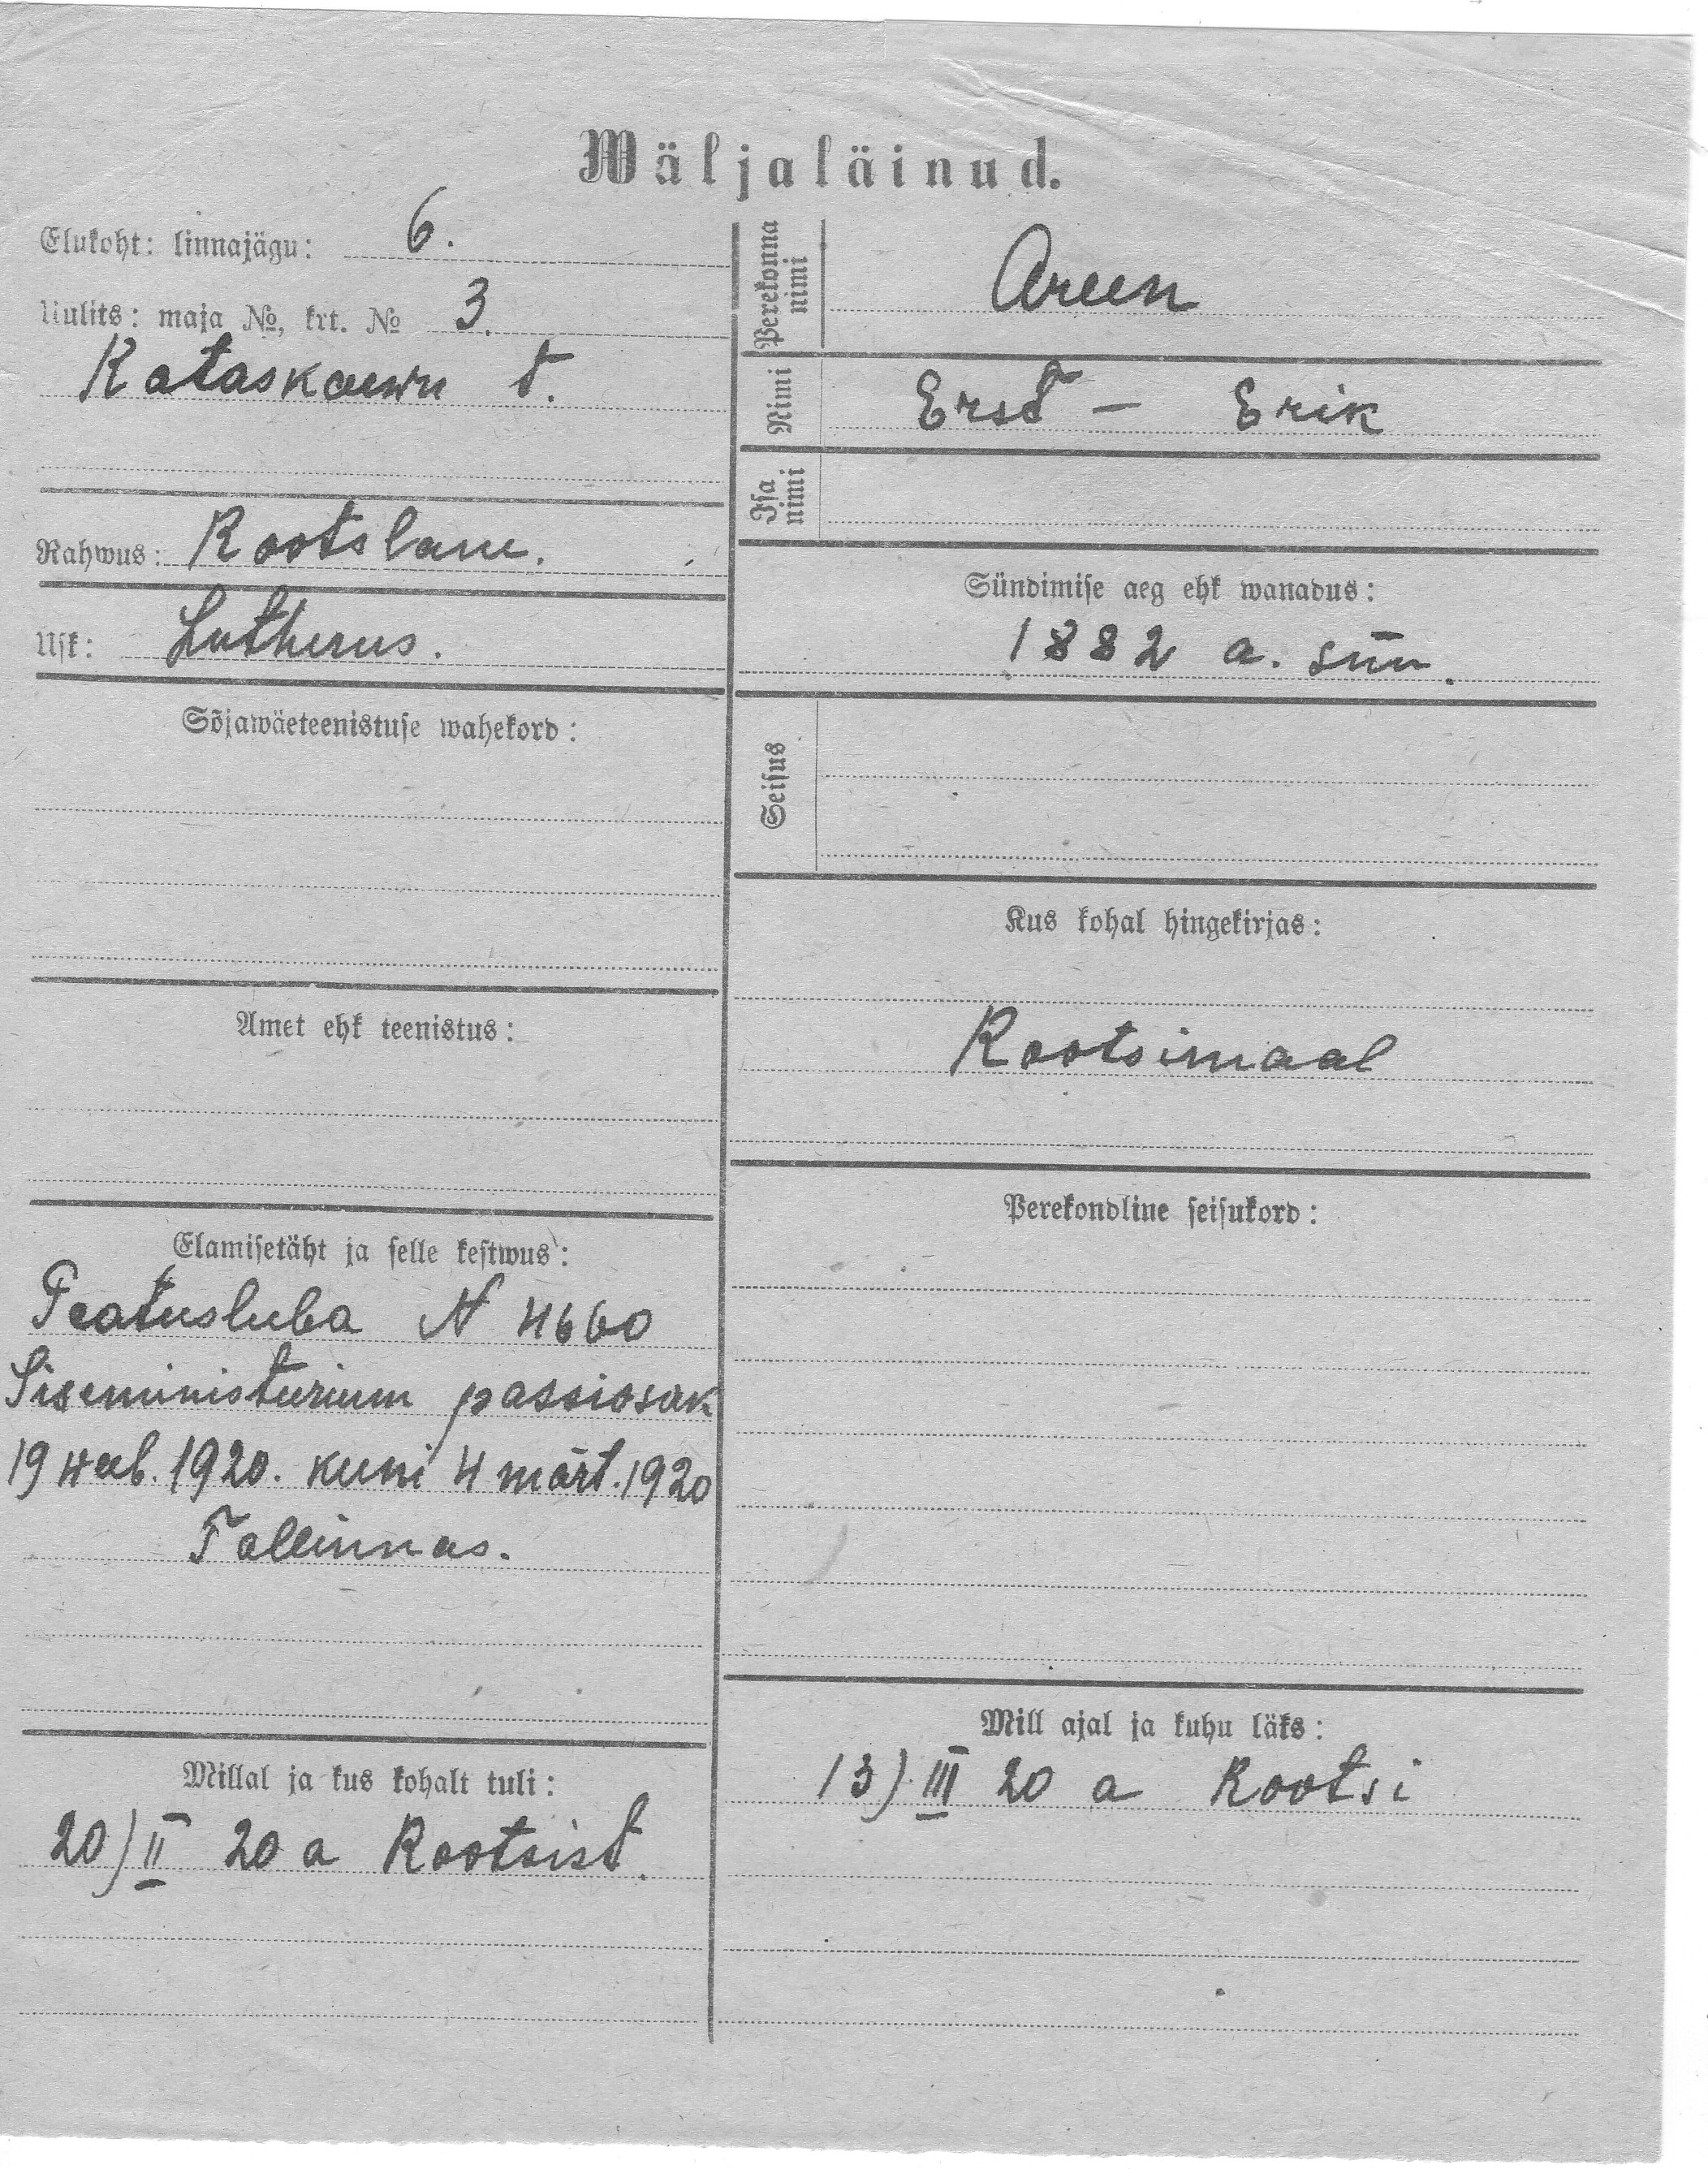 Wäljaläinud.
Elukoht: linnajägu: 6.
Uulits: maja №, krt. № 3.
Rataskaewu t.
Rahwus: Rootslane.
Usk: Lutherus.
Sõjawäeteenistuse wahekord:
Amet ehk teenistus:
Elamisetäht ja selle kestwus:
Peatusluba N 4660
Siseministeerium passiosak
19 weeb. 1920. kuni 4 märt. 1920
Tallinnas.
Millal ja kus kohalt tuli:
20) II 20 a Rootsist.
Perekonna nimi
Areen
Nimi
Erst - Erik
Isa nimi
Sündimise aeg ehk wanadus:
1882 a. sün.
Seisus
Kus kohal hingekirjas:
Rootsimaal
Perekondline seisukord:
Mill ajal ja kuhu läks:
13) III 20 a Rootsi